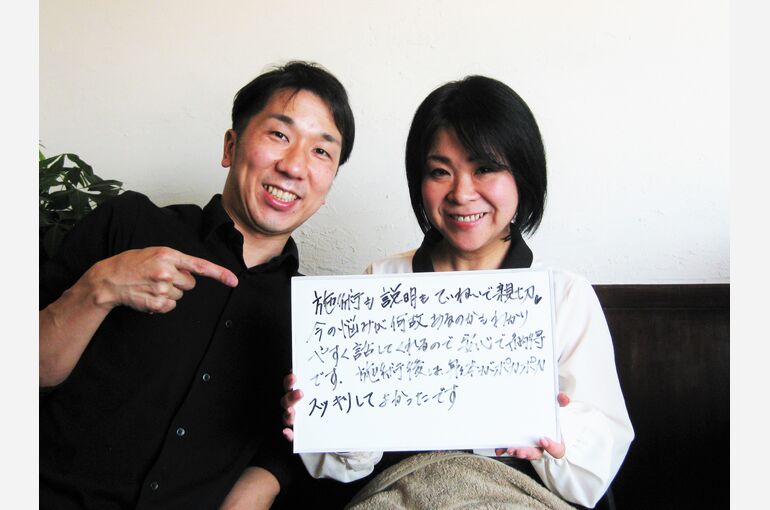 施術も説明もていねいで親切。
今の悩みが何故あるのかもわかり
やすく話してくれるので安心で納得
です。施術後は身体がポカポカ
スッキリしてよかったです